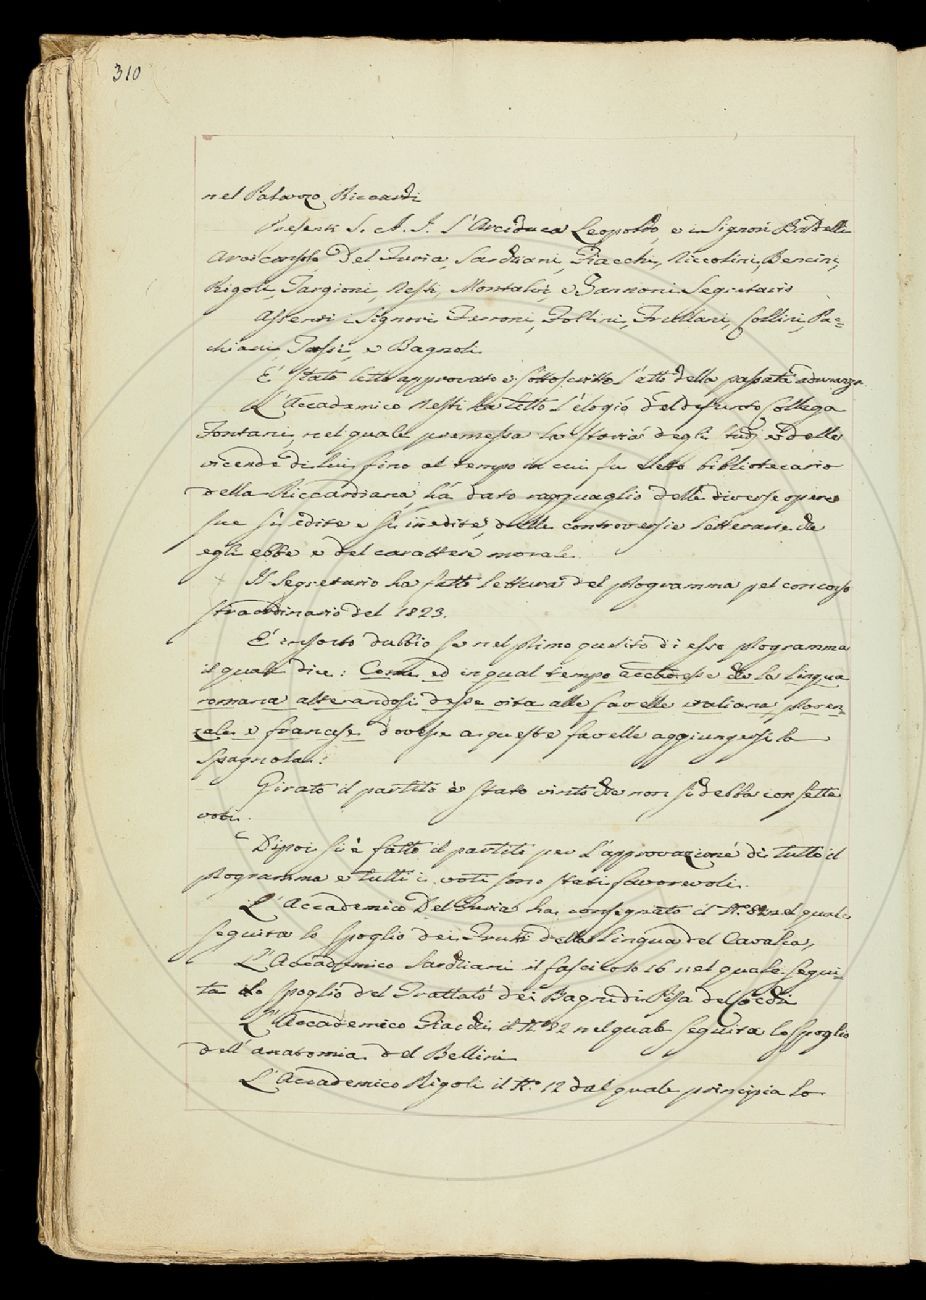 310
nel Palazzo Riccardi
Presenti S. A. I. l'Arciduca Leopoldo, e i Signori
Arciconsolo Del Furia, Sarchiani, Giacchi, Niccolini, Bencini,
Rigoli, Targioni, Nesti, Montalvi, e Zannoni Segretario
Assenti i Signori Ferroni, Follini, Frullani, Collini, Pa=
chiani, e Bagnoli.
E' stato letto approvato e sottoscritto l'atto della passata adunanza
L'Accademico Nesti ha letto l'elogio del defunto Collega
Fontani, nel quale premessa la storia degli studj e delle
vicende di lui fino al tempo in cui fu eletto bibliotecario
della Riccardiana, ha dato ragguaglio delle diverse opere
sue sì edite e sì inedite, delle controversie letterarie che
egli ebbe e del carattere morale.
+ Il Segretario ha fatto lettura del programma pel concorso
straordinario del 1823.
E' insorto dubbio se nel primo quesito di esso programma
il quale dice: Come ed in qual tempo accadesse che la lingua
romana alterandosi desse vita alle favelle italiana, proven-
zale e francese dovesse a queste favelle aggiungersi la
Spagnola:
Girato il partito è stato vinto che non si debba con sette
voti.
Dipoi si è fatto il partito per l'approvazione di tutto il
programma e tutti i voti sono stati favorevoli.
L'Accademico Del Furia ha consegnato il N.º 82 nel quale
seguita lo spoglio dei Frutti della Lingua del Cavalca,
L'Accademico Sarchiani il fascicolo 16 nel quale segui-
ta lo spoglio del Trattato dei Bagni di Pisa del Cocchi
L'Accademico Giacchi il N.º 32 nel quale seguita lo spoglio
dell'anatomia del Bellini
L'Accademico Rigoli il N.º 12 dal quale principia lo